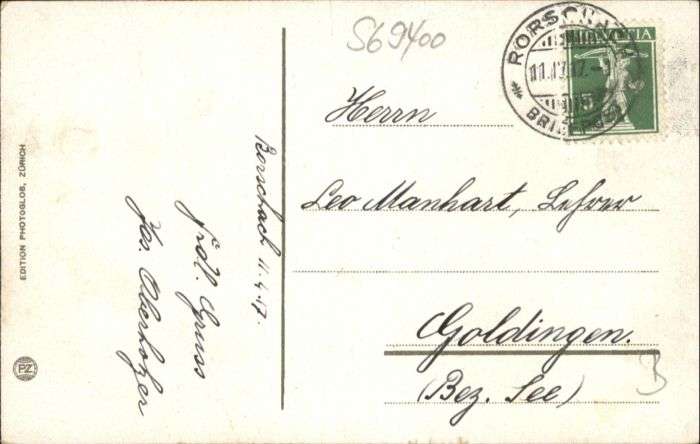 S69400
RORSCHACH
11.IV.17.-
BRIEF
HELVETIA
Herrn
Leo Manhart, Lehrer
Goldingen.
(Bez. See)
B
Rorschach 11.4.17.
Frdl. Gruss
Jos. Oberholzer
EDITION PHOTOGLOB, ZÜRICH
PZ